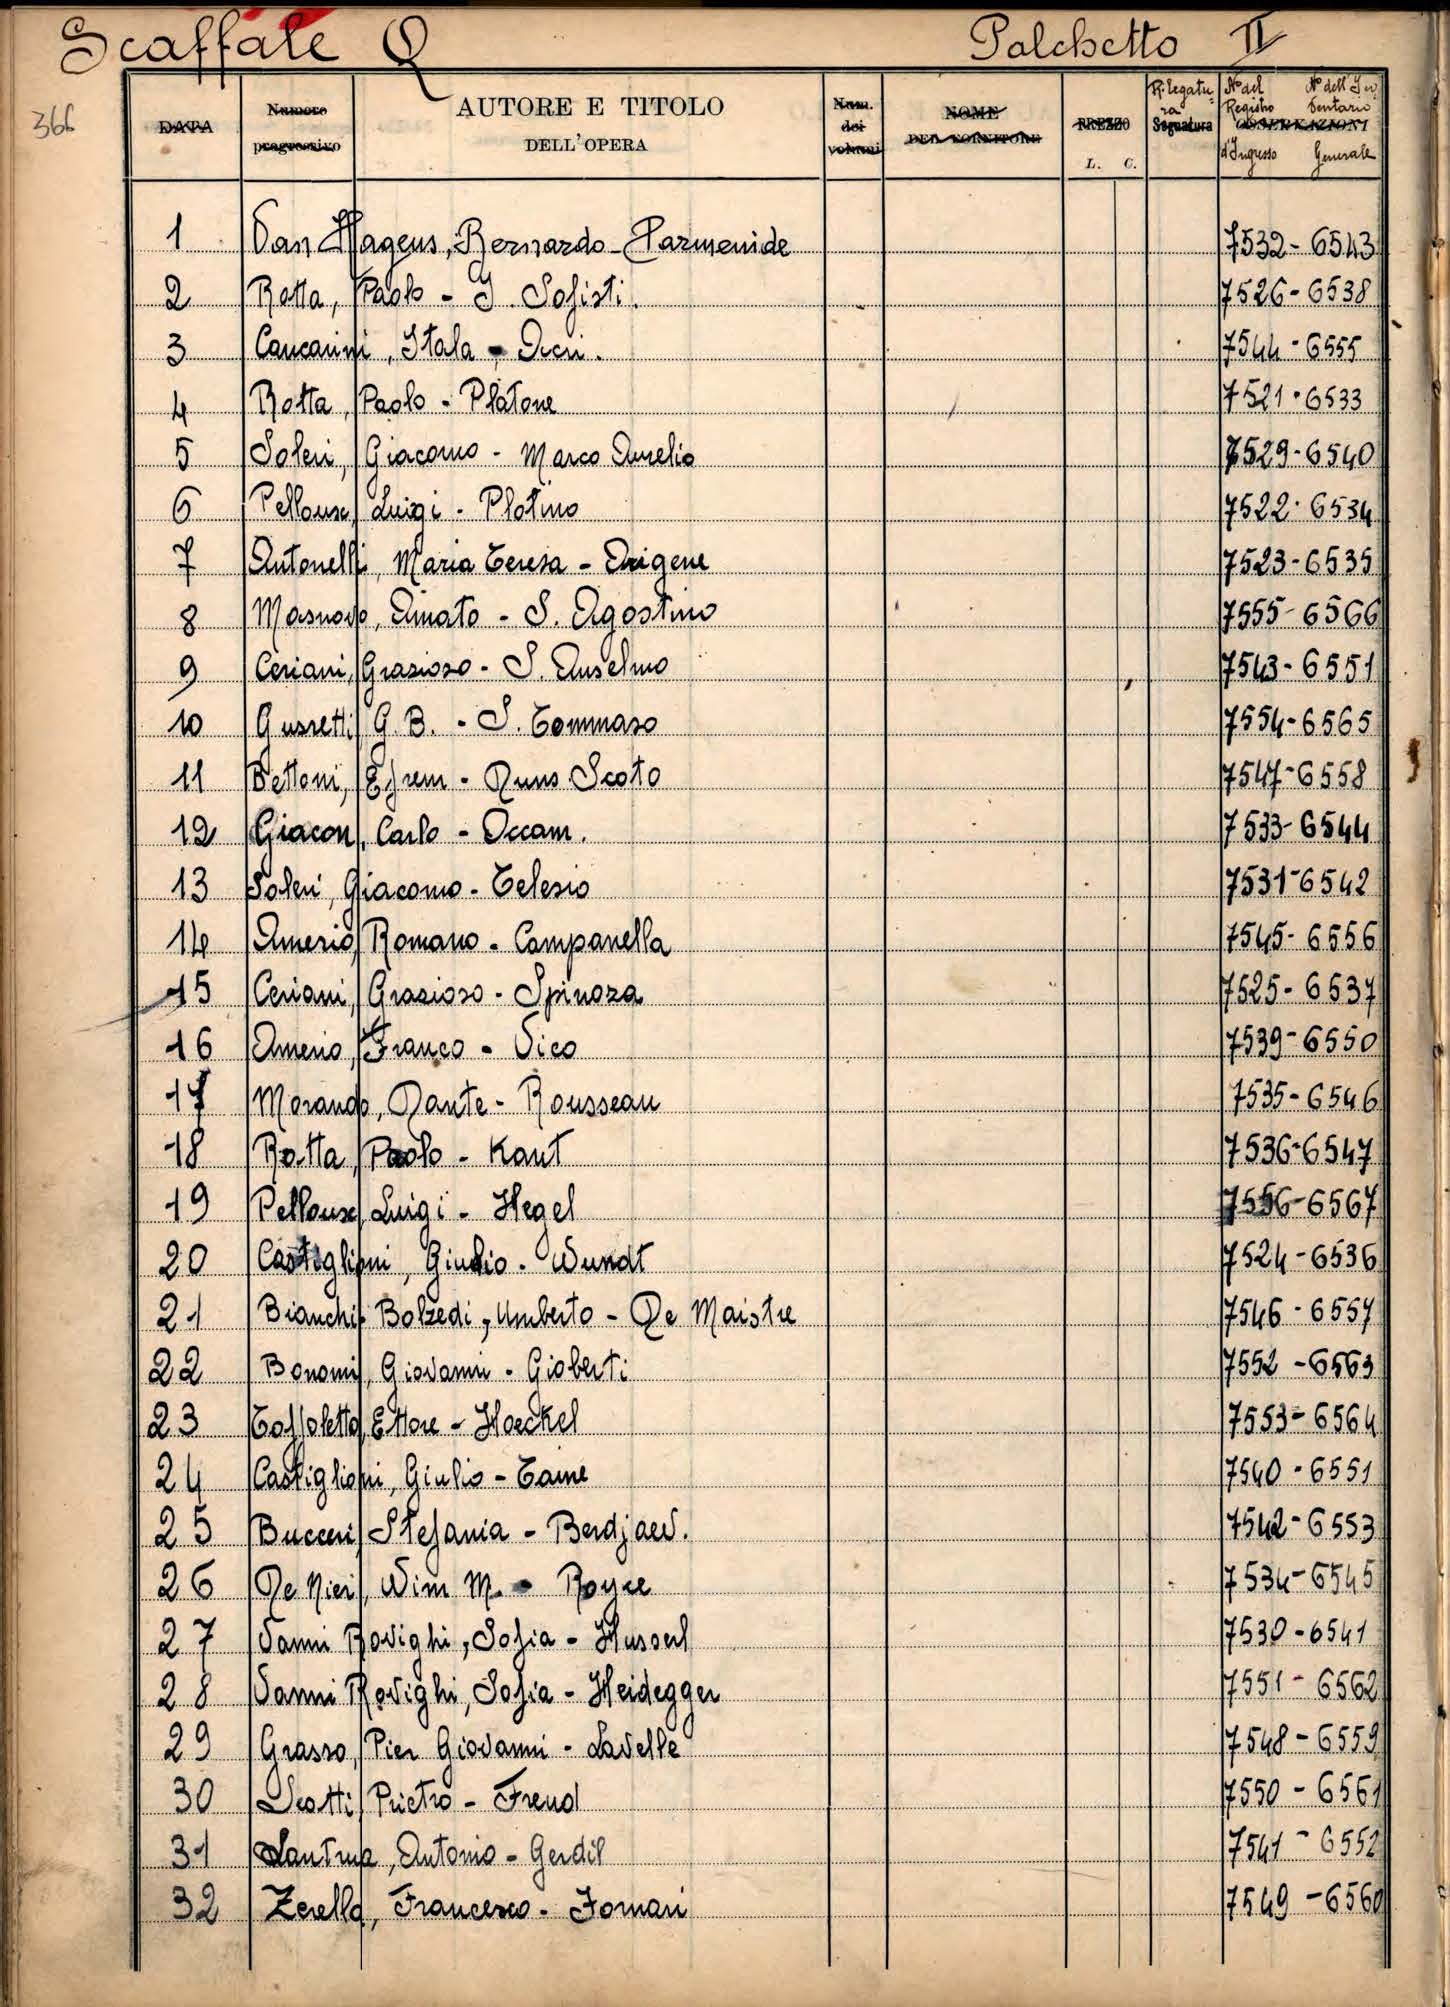 Scaffale Q Palchetto II
366
DATA
Numero progressivo
AUTORE E TITOLO
DELL'OPERA
Num. dei volumi
NOME
DEL FORNITORE
PREZZO
L. C.
Rilegatura
Segnatura
N° del Registro d'Ingresso
N° dell'Inventario Generale
OSSERVAZIONI
1 Van Hagens, Bernardo - Parmenide 7532 - 6543
2 Rotta, Paolo - I. Sofisti. 7526 - 6538
3 Cancarini, Itala - 7544 - 6555
4 Rotta, Paolo - Platone 7521 - 6533
5 Soleri, Giacomo - Marco Aurelio 7529 - 6540
6 Pelloux, Luigi - Plotino 7522 - 6534
7 Antonelli, Maria Teresa - Origene 7523 - 6535
8 Masnovo, Amato - S. Agostino 7555 - 6566
9 Ceriani, Grazioso - S. Anselmo 7543 - 6551
10 Guzzetti G. B. - S. Tommaso 7554 - 6565
11 Bettoni, Efrem - Duns Scoto 7547 - 6558
12 Giacon, Carlo - Occam. 7533 - 6544
13 Soleri, Giacomo - Telesio 7531 - 6542
14 Amerio, Romano - Campanella 7545 - 6556
15 Ceriani, Grazioso - Spinoza 7525 - 6537
16 Amerio, Franco - Vico 7539 - 6550
17 Morando, Dante - Rousseau 7535 - 6546
18 Rotta, Paolo - Kant 7536 - 6547
19 Pelloux, Luigi - Hegel 7556 - 6567
20 Castiglioni, Giulio - Wundt 7524 - 6536
21 Bianchi Bolzedi, Umberto - De Maistre 7546 - 6557
22 Bonomi, Giovanni - Gioberti 7552 - 6563
23 Toffoletto, Ettore - Hoeckel 7553 - 6564
24 Castiglioni, Giulio - Taine 7540 - 6551
25 Bucceri, Stefania - Berdjaev. 7542 - 6553
26 De Nieri, Wim M. - Royce 7534 - 6545
27 Vanni Rovighi, Sofia - Husserl 7530 - 6541
28 Vanni Rovighi, Sofia - Heidegger 7551 - 6562
29 Grasso, Pier Giovanni - Lavelle 7548 - 6559
30 Scotti, Prietro - Freud 7550 - 6561
31 Lantrua, Antonio - Gerdil 7541 - 6552
32 Zerella, Francesco - Fornari 7549 - 6560